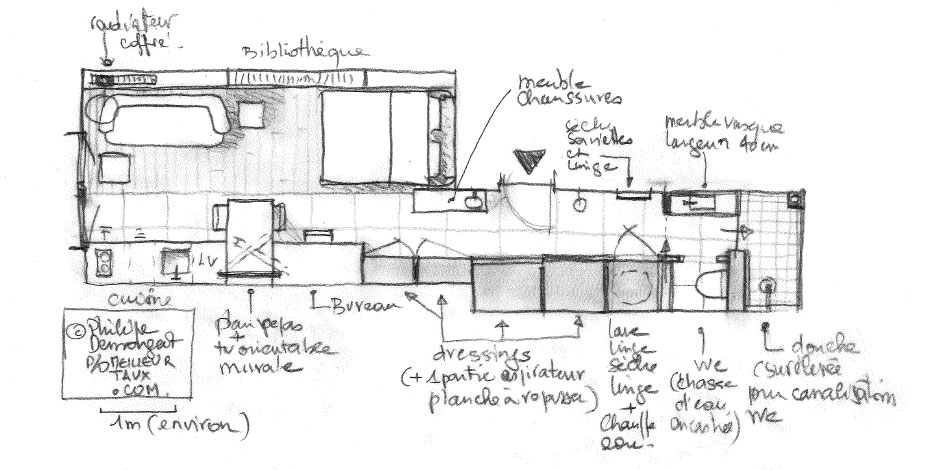 radiateur
coffré.
Bibliothèque
meuble
chaussures
sèche
serviettes
et
linge
meuble vasque
largeur 40cm
LV
cuisine
© Philippe
Demougeot
P/O MEILLEUR
TAUX
.COM.
1m (environ)
plan repas
+
tv orientable
murale
Bureau
dressings
(+ 1 partie aspirateur
planche à repasser)
lave
linge
sèche
linge
+
chauffe
eau.
WC
(chasse
d'eau
encastrée)
douche
(surélevée
pour canalisations
WC